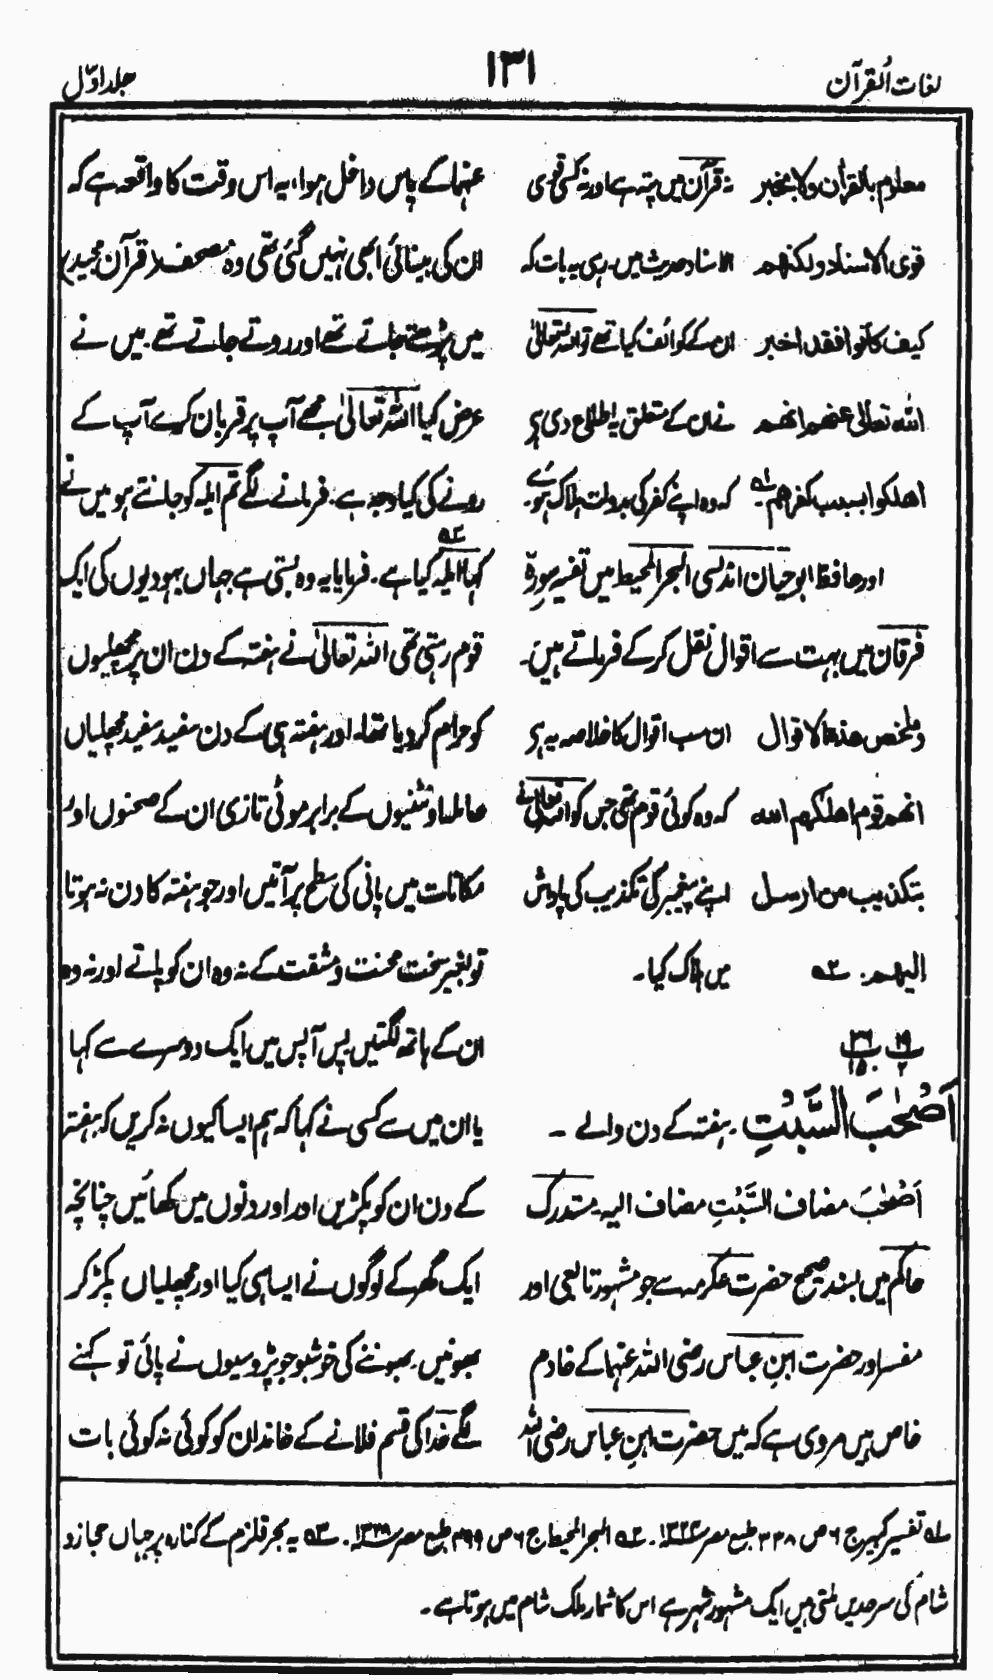 لغات القرآن
۱۳۱
جلد اوّل
معلوم بالقرآن ولا بخبر نہ قرآن میں پتہ ہے اور نہ کسی قوی
قوی الاسناد ولکنھم الاسناد حدیث میں۔ رہی یہ بات کہ
کیف کانوا فقد اخبر ان کے کوائف کیا تھے تو اللہ تعالیٰ
اللہ تعالیٰ عنھم انھم نے ان کے متعلق یہ اطلاع دی ہے
اھلکوا بسبب کفرھم۔ لہ کہ وہ اپنے کفر کی بدولت ہلاک ہوئے۔
اور حافظ ابو حیان اندلسی البحر المحیط میں تفسیر سورۂ
فرقان میں بہت سے اقوال نقل کر کے فرماتے ہیں۔
وملخص ھذہ الاقوال ان سب اقوال کا خلاصہ یہ ہے
انھم قوم اھلکھم اللہ کہ وہ کوئی قوم تھی جس کو اللہ تعالیٰ نے
بتکذیب من ارسل اپنے پیغمبر کی تکذیب کی پاداش
الیھم۔ ۲ہ میں ہلاک کیا۔
اَصْحٰبَ السَّبْتِ۔ ہفتہ کے دن والے ۔
اَصْحٰبَ مضاف السَّبْتِ مضاف الیہ۔ مستدرک
حاکم میں بسند صحیح حضرت عکرمہ سے جو مشہور تابعی اور
مفسر اور حضرت ابن عباس رضی اللہ عنہما کے خادم
خاص ہیں مروی ہے کہ میں حضرت ابن عباس رضی اللہ
عنہما کے پاس داخل ہوا، یہ اس وقت کا واقعہ ہے کہ
ان کی بینائی ابھی نہیں گئی تھی وہ مصحف (قرآن مجید)
میں پڑھتے جاتے تھے اور روتے جاتے تھے۔ میں نے
عرض کیا اللہ تعالیٰ مجھے آپ پر قربان کرے آپ کے
رونے کی کیا وجہ ہے۔ فرمانے لگے تم ایلہ کو جانتے ہو میں نے
کہا ایلہ ۳ہ کیا ہے۔ فرمایا یہ وہ بستی ہے جہاں یہودیوں کی ایک
قوم رہتی تھی اللہ تعالیٰ نے ہفتہ کے دن ان پر مچھلیوں
کو حرام کر دیا تھا۔ اور ہفتہ ہی کے دن سفید سفید مچھلیاں
حاملہ اونٹنیوں کے برابر موٹی تازی ان کے صحنوں اور
مکانات میں پانی کی سطح پر آتیں اور جو ہفتہ کا دن نہ ہوتا
تو بغیر سخت محنت و مشقت کے نہ وہ ان کو پاتے اور نہ وہ
ان کے ہاتھ لگتیں پس آپس میں ایک دوسرے سے کہا
یا ان میں سے کسی نے کہا کہ ہم ایسا کیوں نہ کریں کہ ہفتہ
کے دن ان کو پکڑیں اور اور دنوں میں کھائیں چنانچہ
ایک گھر کے لوگوں نے ایسا ہی کیا اور مچھلیاں پکڑ کر
بھونیں۔ بھوننے کی خوشبو جو پڑوسیوں نے پائی تو کہنے
لگے خدا کی قسم فلانے کے خاندان کو کوئی نہ کوئی بات
۱ہ تفسیر کبیر ج ۶ ص ۳۳۸ طبع مصر ۱۳۲۴ھ۔ ۲ہ البحر المحیط ج ۶ ص ۴۹۹ طبع مصر ۱۳۲۹ھ۔ ۳ہ یہ بحر قلزم کے کنارہ پر جہاں حجاز و
شام کی سرحدیں ملتی ہیں ایک مشہور شہر ہے اس کا شمار ملک شام میں ہوتا ہے۔